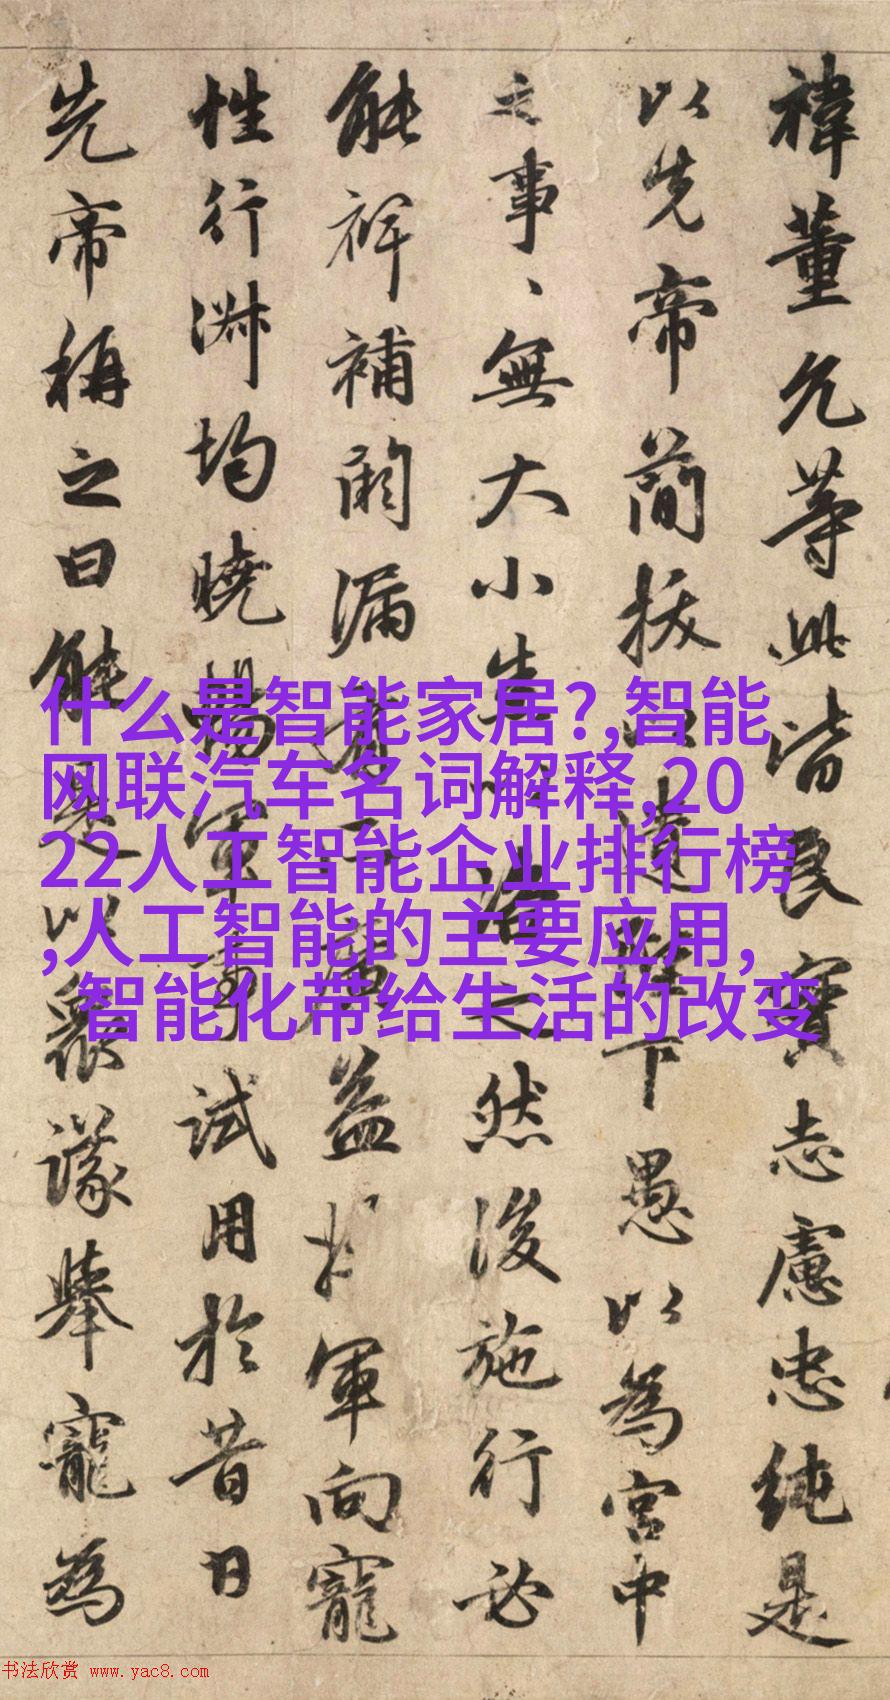 禕董允等此皆良實志慮忠純是
以先帝簡拔以遺陛下愚以為宮中
之事、無大小諮之然後施行必
能裨補闕漏有所廣益將軍向寵
性行淋均曉暢軍事試用於昔日
先帝稱之曰能是以衆議舉寵為
什么是智能家居?,智能
网联汽车名词解释,20
22人工智能企业排行榜
,人工智能的主要应用,
智能化带给生活的改变
书法欣赏 www.yac8.com